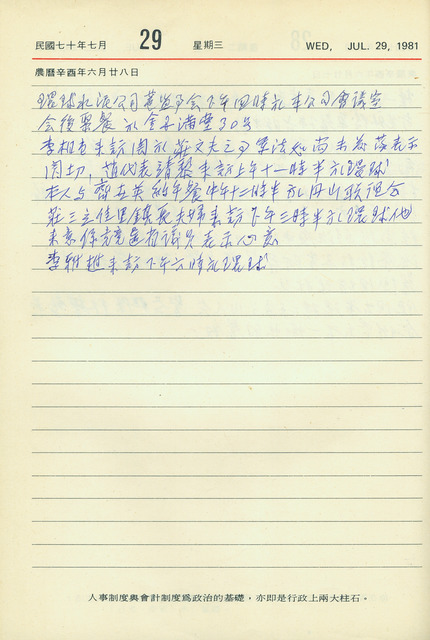 民國七十年七月 29 星期三 WED, JUL. 29, 1981
農曆辛酉年六月廿八日
環球水泥公司董監事會下午四時於本公司會議室
會後聚餐於金 滿堂30号
李相 來訪関於莊文夫之 尚未 落表示
関切, 代表請 來訪上午十一時半於環球
本人與 英 午餐中午十二時半於丹山
莊三立佳里鎮長夫婦來訪下午三時半於環球他
來意係 競選 議員表示心意
李雅樵來訪下午六時於環球
人事制度與會計制度爲政治的基礎，亦即是行政上兩大柱石。